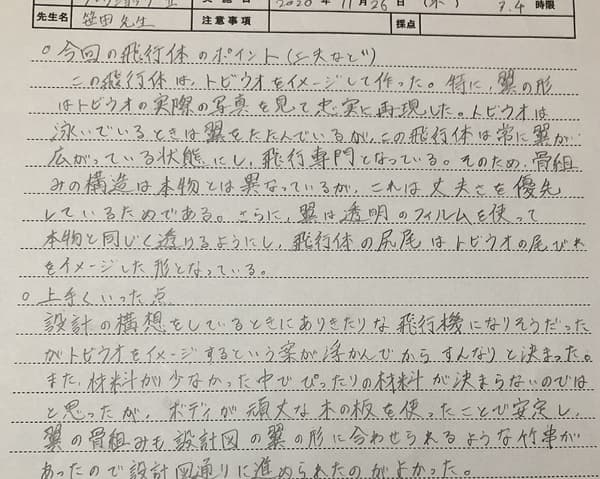 2020 年 11月 26日 (木) 3.4 時限
先生名 笹田先生 注意事項 採点
○今回の飛行体のポイント(工夫など)
この飛行体は、トビウオをイメージして作った。特に、翼の形
はトビウオの実際の写真を見て忠実に再現した。トビウオは
泳いでいるときは翼をたたんでいるが、この飛行体は常に翼が
広がっている状態にし、飛行専門となっている。そのため、骨組
みの構造は本物とは異なっているが、これは丈夫さを優先
しているためである。さらに、翼は透明のフィルムを使って
本物と同じく透けるようにし、飛行体の尻尾はトビウオの尾びれ
をイメージした形となっている。
○上手くいった点
設計の構想をしているときにありきたりな飛行機になりそうだった
がトビウオをイメージするという案が浮かんでから、すんなりと決まった。
また、材料が少なかった中でぴったりの材料が決まらないのでは
と思ったが、ボディが頑丈な木の板を使ったことで安定し、
翼の骨組みも設計図の翼の形に合わせられるような竹串が
あったので設計図通りに進められたのがよかった。